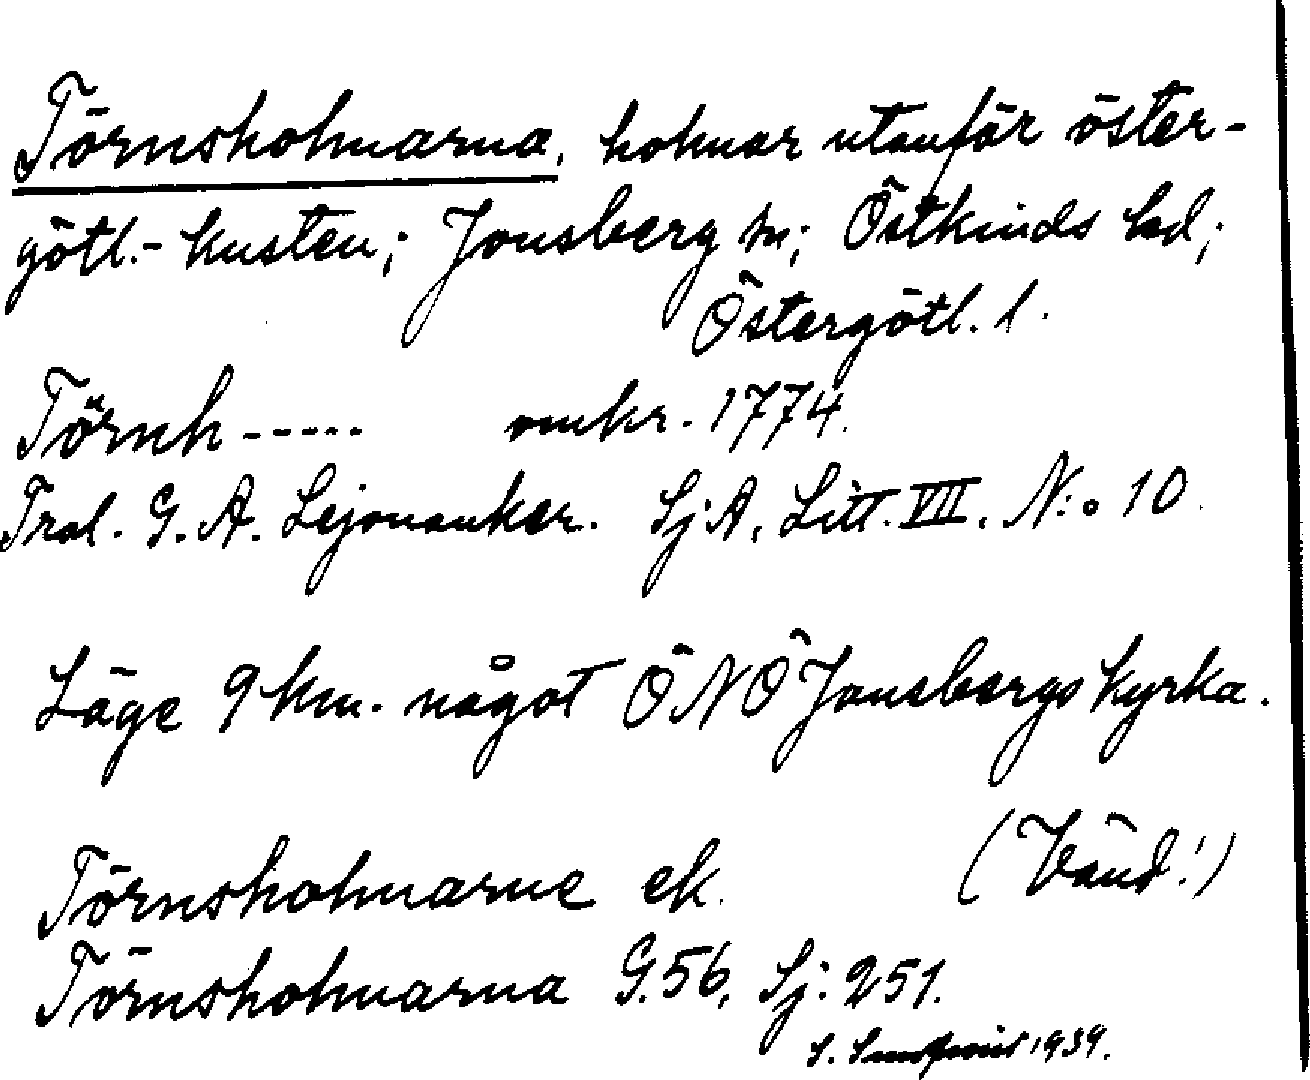 Törnsholmarna, holmar utanför öster-
götl.- kusten; Jonsberg sn; Östkinds hd;
Östergötl. l.
Törnh----- omkr. 1774.
Tral. G. A. Lejonanker. SjA, Litt. VIII. N:o 10.
Läge 9 km. något ÖNÖ Jonsbergs kyrka.
(Vänd!)
Törnsholmarne ek.
Törnsholmarna G.56, Sj: 251.
S. 1939.